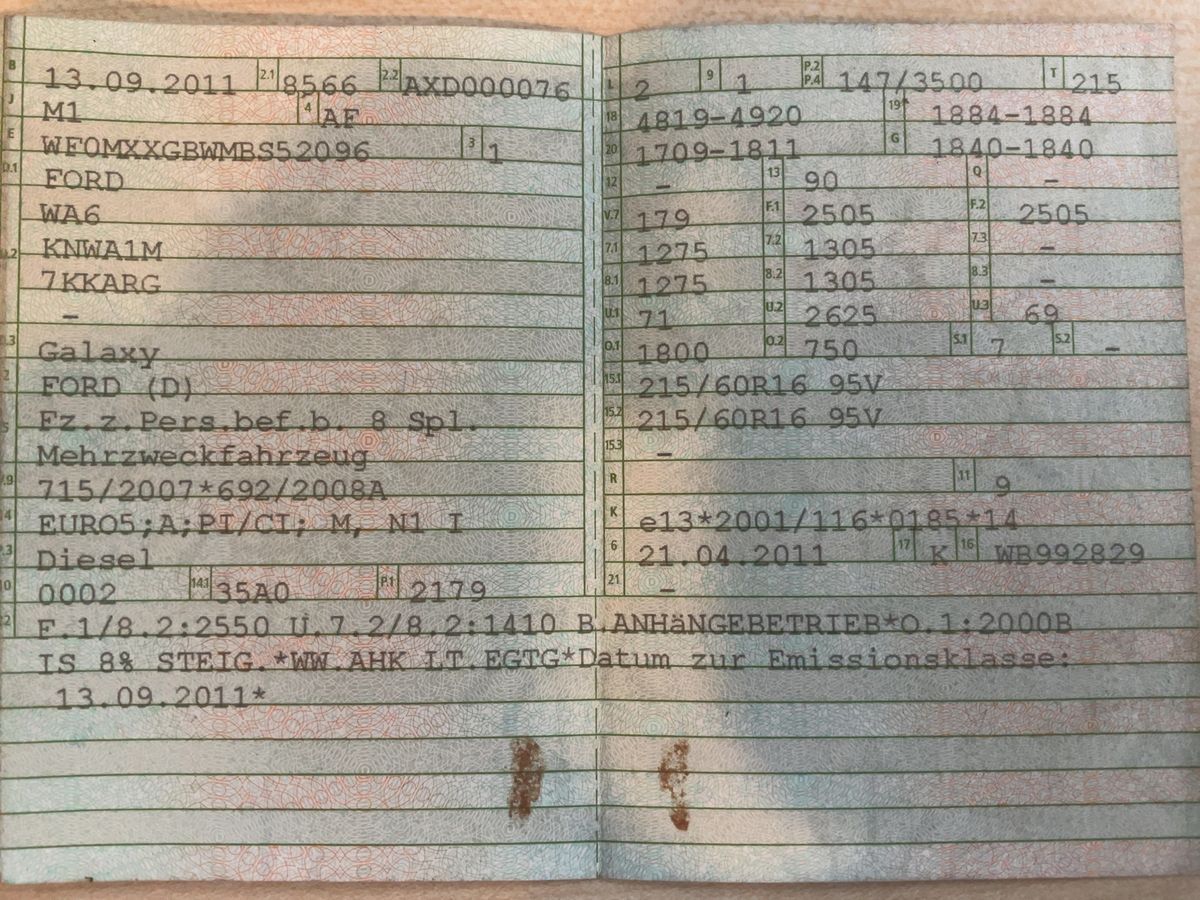 B 13.09.2011 2.1 8566 2.2 AXD000076
J M1 4 AF
E WF0MXXGBWMBS52096 3 1
D.1 FORD
WA6
KNWA1M
7KKARG
–
Galaxy
2 FORD (D)
5 Fz.z.Pers.bef.b. 8 Spl.
Mehrzweckfahrzeug
715/2007*692/2008A
EURO5;A;PI/CI; M, N1 I
Diesel
10 0002 14.1 35A0 P.1 2179
L 2 9 1 P.2 P.4 147/3500 T 215
18 4819-4920 19 1884-1884
20 1709-1811 G 1840-1840
12 – 13 90 Q –
V.7 179 F.1 2505 F.2 2505
7.1 1275 7.2 1305 7.3 –
8.1 1275 8.2 1305 8.3 –
U.1 71 U.2 2625 U.3 69
O.1 1800 O.2 750 S.1 7 S.2 –
15.1 215/60R16 95V
15.2 215/60R16 95V
15.3 –
R 11 9
K e13*2001/116*0185*14
6 21.04.2011 17 K 16 WB992829
21 –
F.1/8.2:2550 U.7.2/8.2:1410 B.ANHäNGEBETRIEB*O.1:2000B
IS 8% STEIG.*WW.AHK LT.EGTG*Datum zur Emissionsklasse:
13.09.2011*